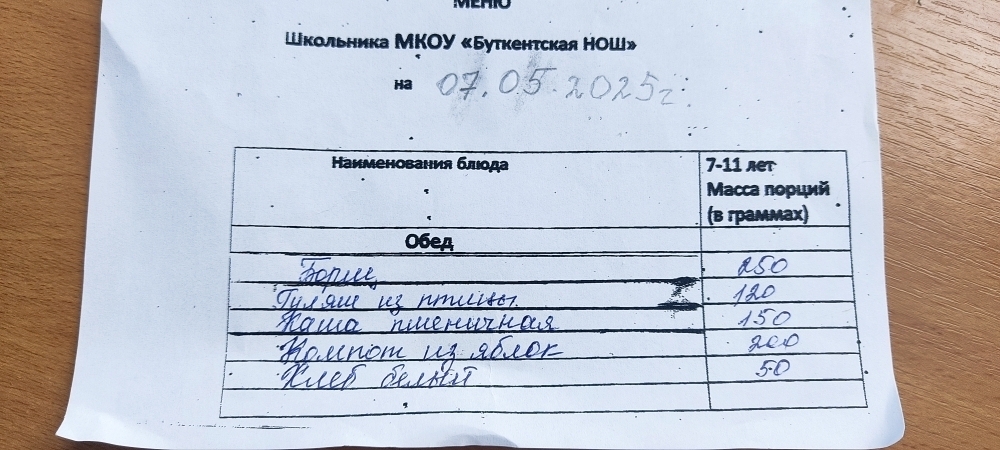 МЕНЮ
Школьника МКОУ «Буткентская НОШ»
на 07.05.2025г.
Наименования блюда
7-11 лет
Масса порций
(в граммах)
Обед
Борщ 250
Гуляш из птицы 120
Каша пшеничная 150
Компот из яблок 200
Хлеб белый 50